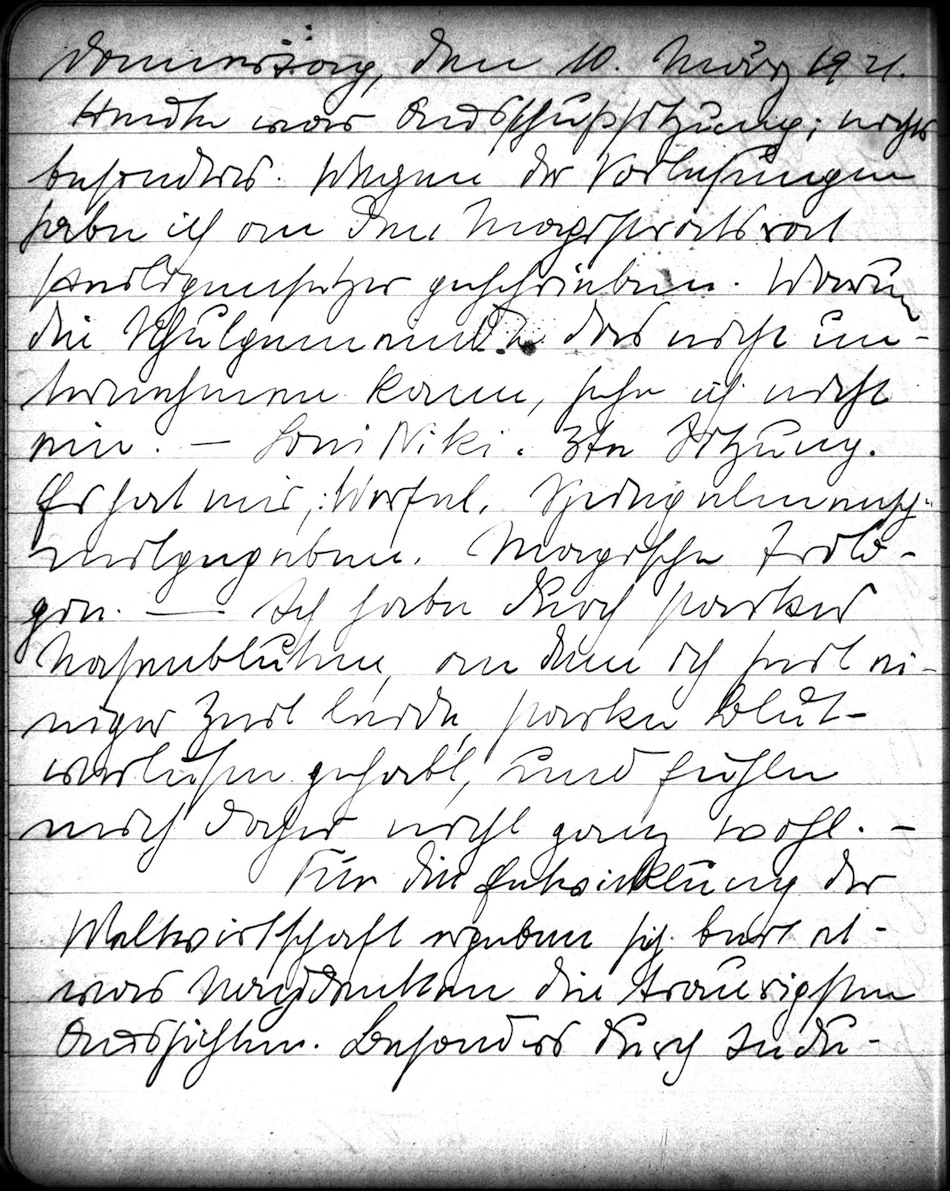 Donnerstag, den 10. März 1921.
Heute war Ausschußsitzung; nichts
besonderes. Wegen der Vorlesungen
habe ich an den Magistratsrat
geschrieben. Warum
die Schulgemeinde das nicht un-
ternehmen kann, sehe ich nicht
ein. — Niki. 3te Sitzung.
Er hat mir, Werfel, Spiegelmensch
mitgegeben. Magische Trilo-
gie. — Ich habe durch starkes
Nasenbluten, an dem ich seit ei-
niger Zeit leide, starken Blut-
verlust gehabt, und fühle
mich daher nicht ganz wohl. —
Für die Entwicklung der
Weltwirtschaft ergeben sich bei et-
was Nachdenken die traurigsten
Aussichten. Besonders durch Indu-